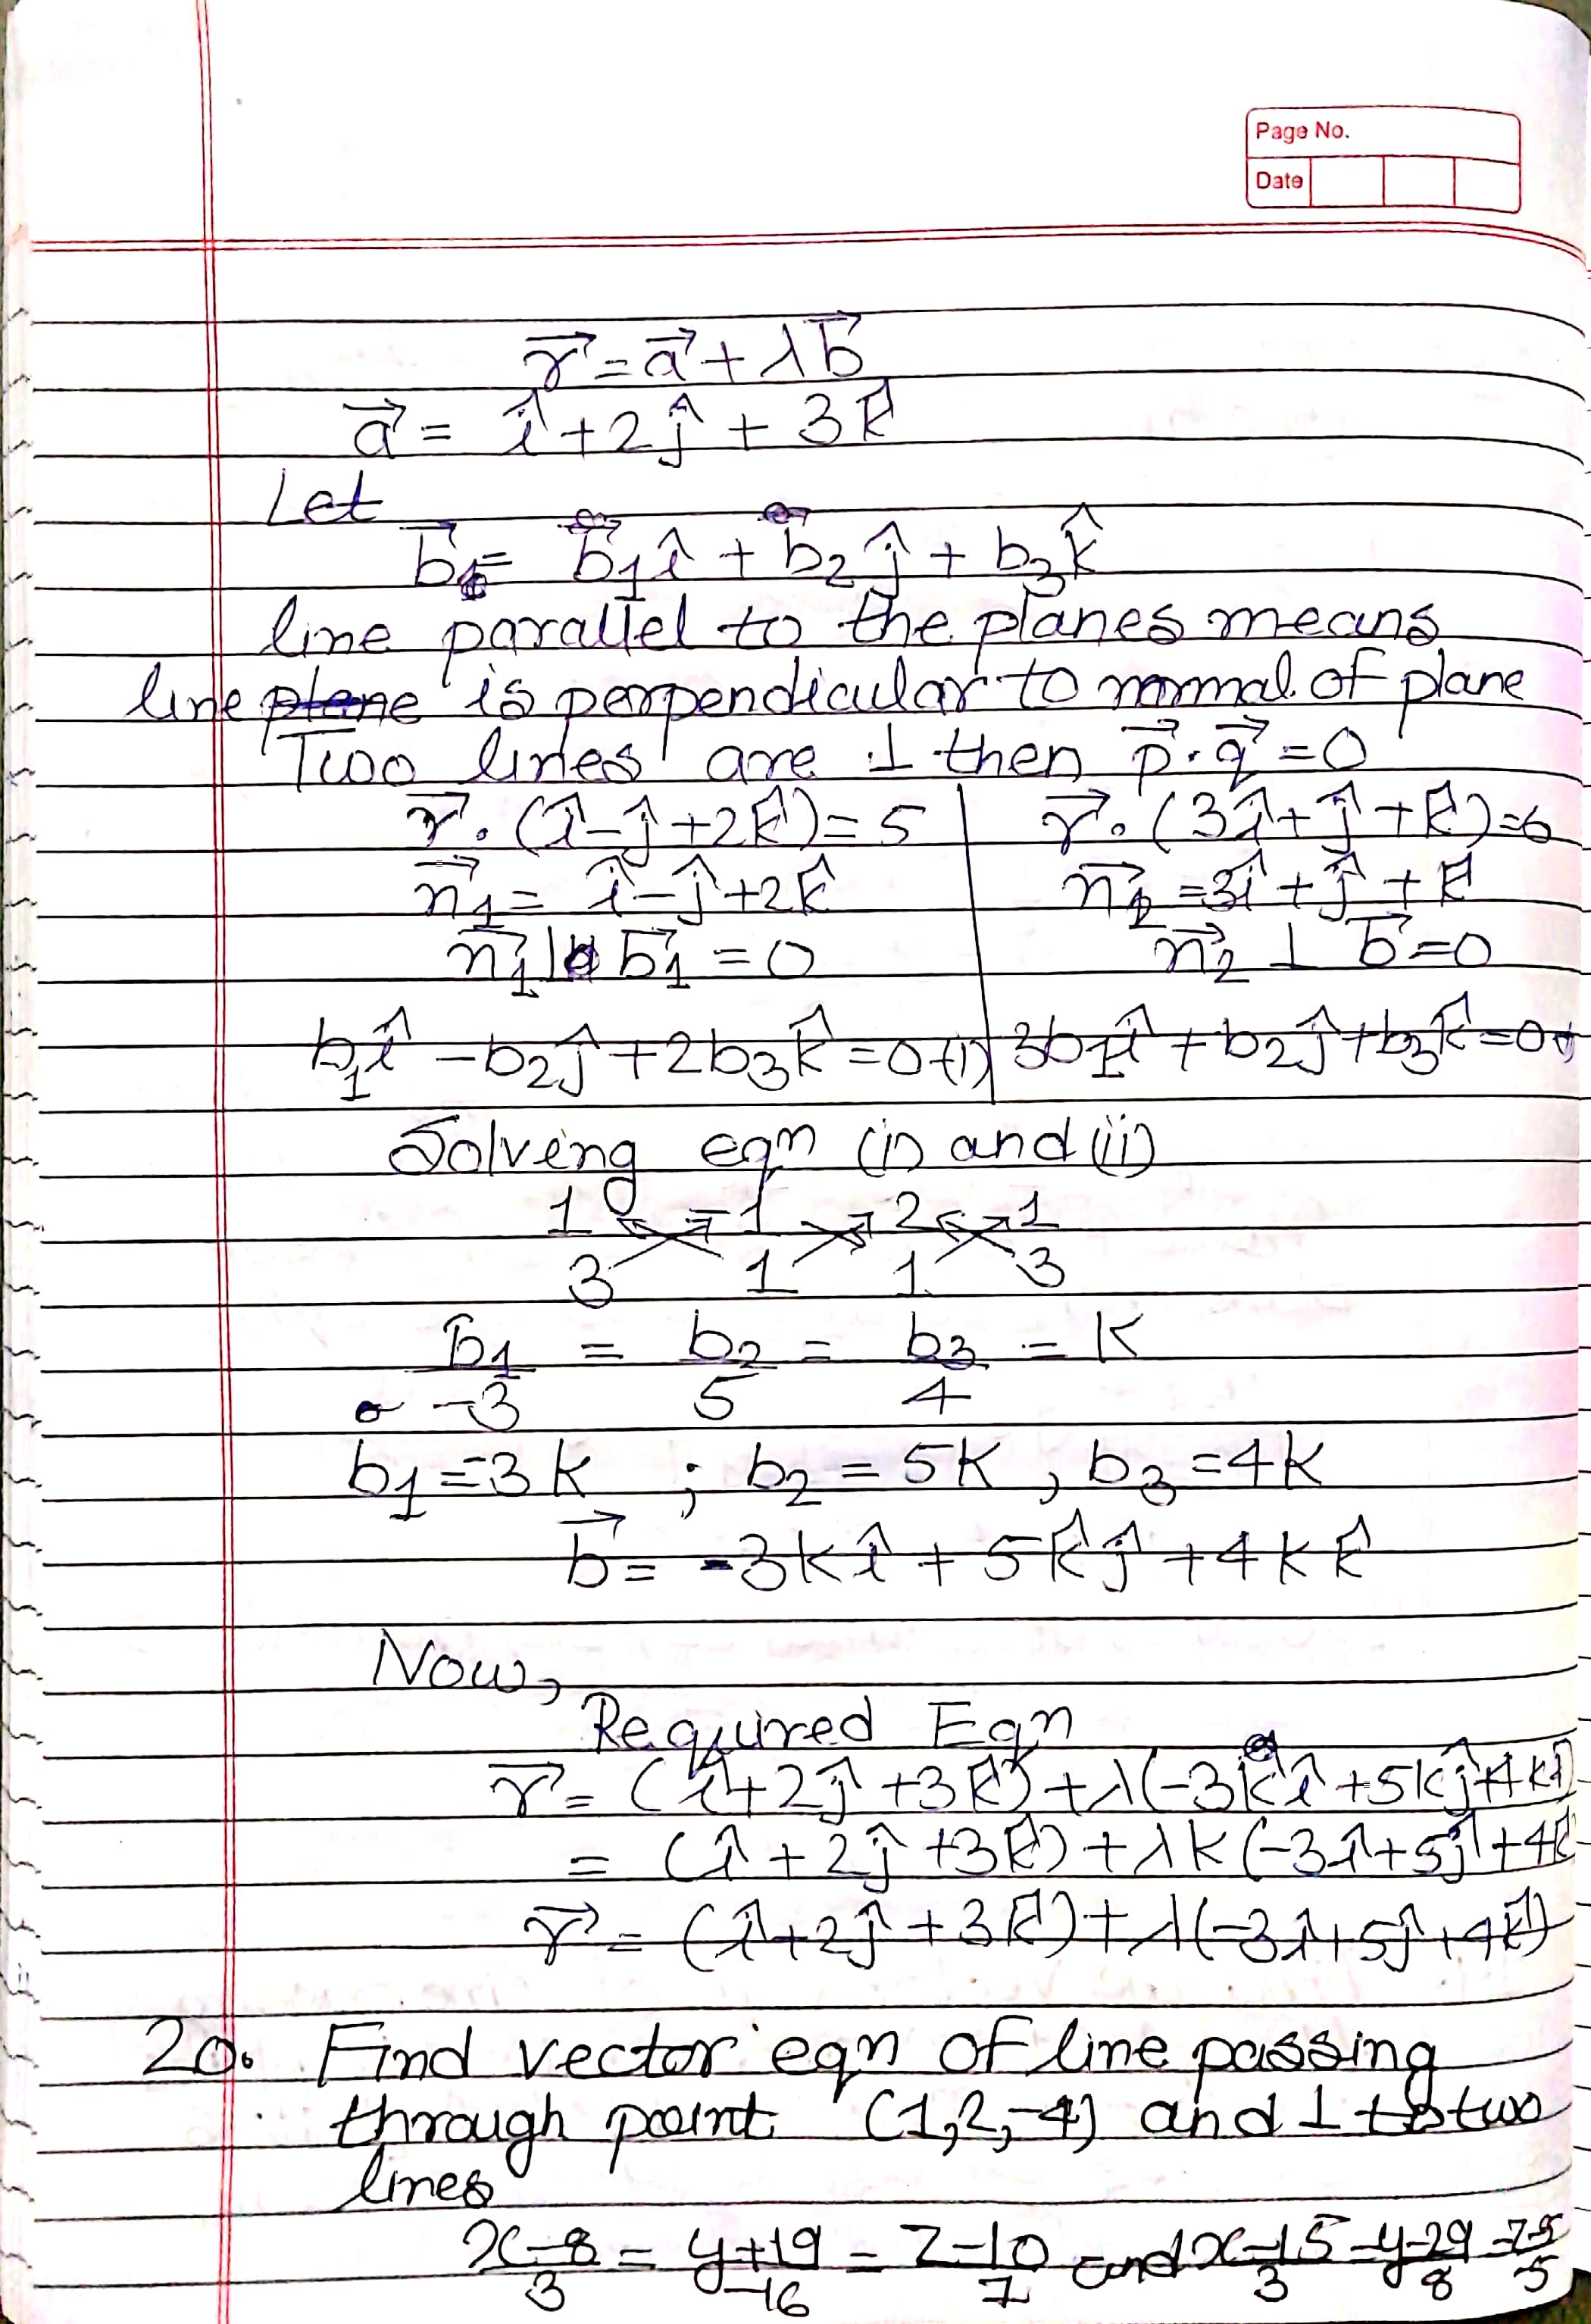 Page No.
Date
r⃗ = a⃗ + λb⃗
a⃗ = î + 2ĵ + 3k̂
Let
b⃗ = b₁î + b₂ĵ + b₃k̂
line parallel to the planes means
line is perpendicular to normal of plane
Two lines are ⊥ then p⃗·q⃗ = 0
r⃗.(î - ĵ + 2k̂) = 5 | r⃗.(3î + ĵ + k̂) = 6
n⃗₁ = î - ĵ + 2k̂ | n⃗₂ = 3î + ĵ + k̂
n⃗₁ b⃗₁ = 0 | n⃗₂ ⊥ b⃗ = 0
b₁î - b₂ĵ + 2b₃k̂ = 0 (i) | 3b₁î + b₂ĵ + b₃k̂ = 0
Solving eqn (i) and (ii)
1 -1 2 1
3 1 1 3
b₁/-3 = b₂/5 = b₃/4 = K
b₁ = -3k ; b₂ = 5K , b₃ = 4K
b⃗ = -3kî + 5kĵ + 4kk̂
Now,
Required Eqn
r⃗ = (î + 2ĵ + 3k̂) + λ(-3kî + 5kĵ + 4kk̂)
= (î + 2ĵ + 3k̂) + λk(-3î + 5ĵ + 4k̂
r⃗ = (î + 2ĵ + 3k̂) + λ(-3î + 5ĵ + 4k̂)
20. Find vector eqn of line passing
through point (1,2,-4) and ⊥ to two
lines
x-8/3 = y+19/-16 = z-10/7 and x-15/3 = y-29/8 = z-5/-5